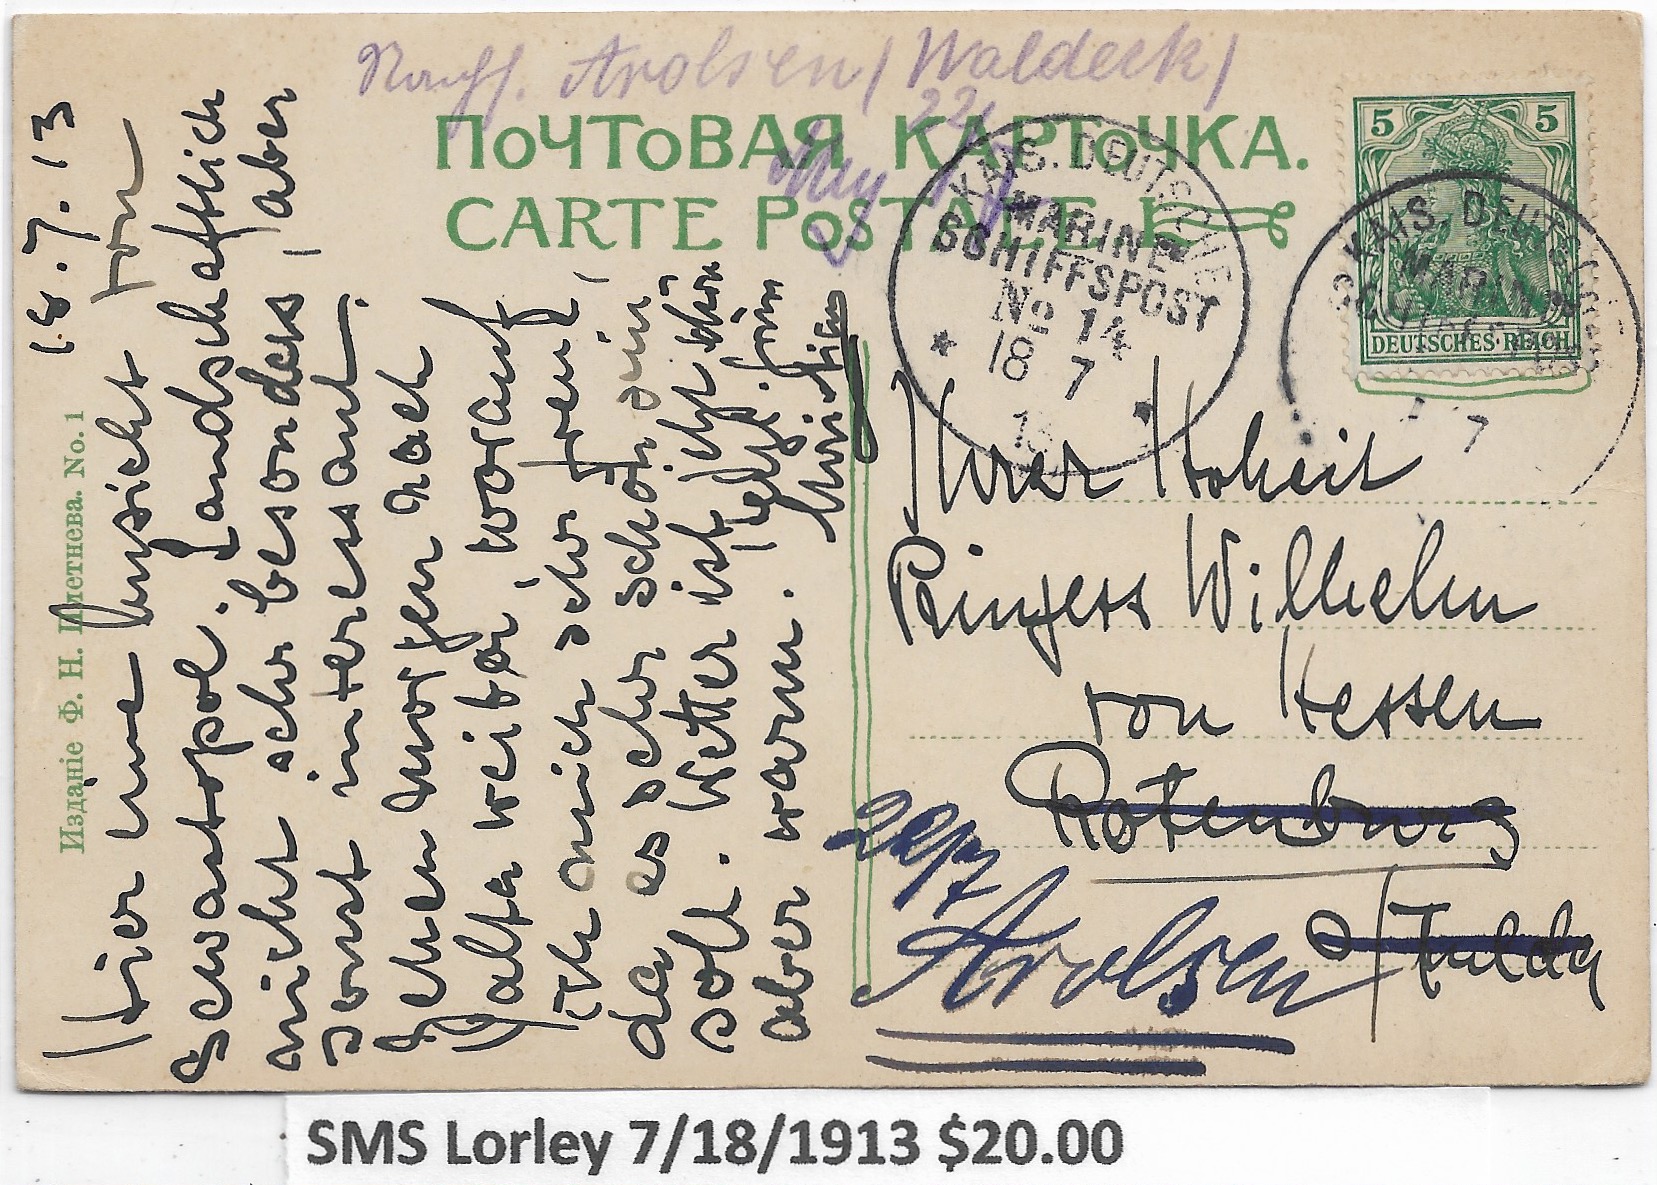 Arolsen / Waldeck /
ПОЧТОВАЯ КАРТОЧКА.
CARTE POSTALE
18.7.13
Hier eine Ansicht von
Sewastopol. Landschaftlich
nicht sehr besonders, aber
sonst interessant.
Gehen morgen nach
Yalta weiter, worauf
ich mich sehr freue,
da es sehr schön sein
soll. Wetter ist jetzt schön
aber warm.
Изданіе Ф. Н. Плетнева. No. 1
KAIS. DEUTSCHE
MARINE-
SCHIFFSPOST
No 14
18 7
13
5 5
DEUTSCHES REICH
KAIS. DEUTSCHE
MARINE
7
Ihrer Hoheit
Prinzess Wilhelm
von Hessen
Rotenburg
a/Fulda
Arolsen
SMS Lorley 7/18/1913 $20.00